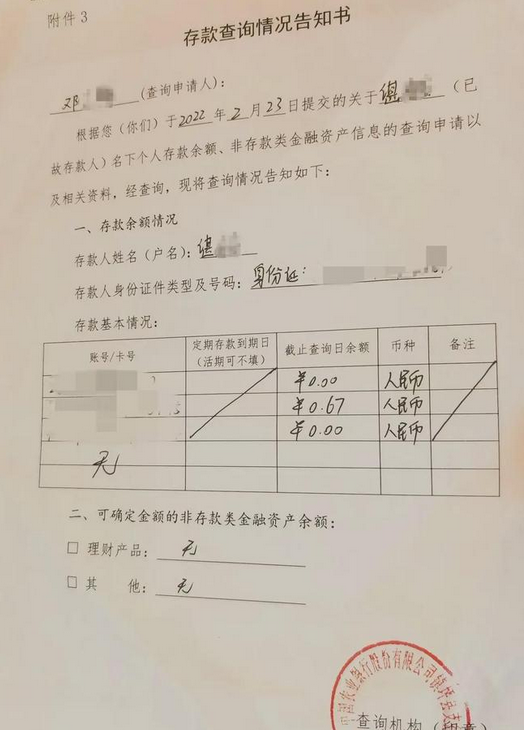 附件3
存款查询情况告知书
邓 (查询申请人):
根据您(你们)于2022年2月23日提交的关于谌 (已
故存款人)名下个人存款余额、非存款类金融资产信息的查询申请以
及相关资料,经查询,现将查询情况告知如下:
一、存款余额情况
存款人姓名(户名):谌
存款人身份证件类型及号码:身份证:
存款基本情况:
账号/卡号 定期存款到期日(活期可不填) 截止查询日余额 币种 备注
¥0.00 人民币
¥0.67 人民币
¥0.00 人民币
无
二、可确定金额的非存款类金融资产余额:
□ 理财产品: 无
□ 其 他: 无
农业银行股份有限公司镇坪县支
查询机构(印章)